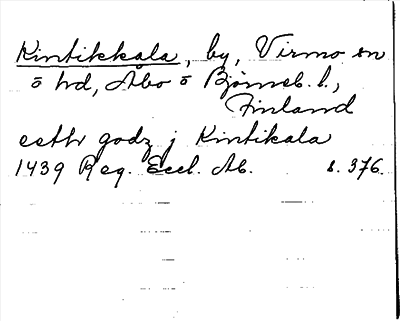 Kintikkala, by, Virmo sn
o hd, Åbo o Björneb. l.,
Finland
eeth godz j Kintikala
1439 Reg. Eccl. Ab. s. 376.